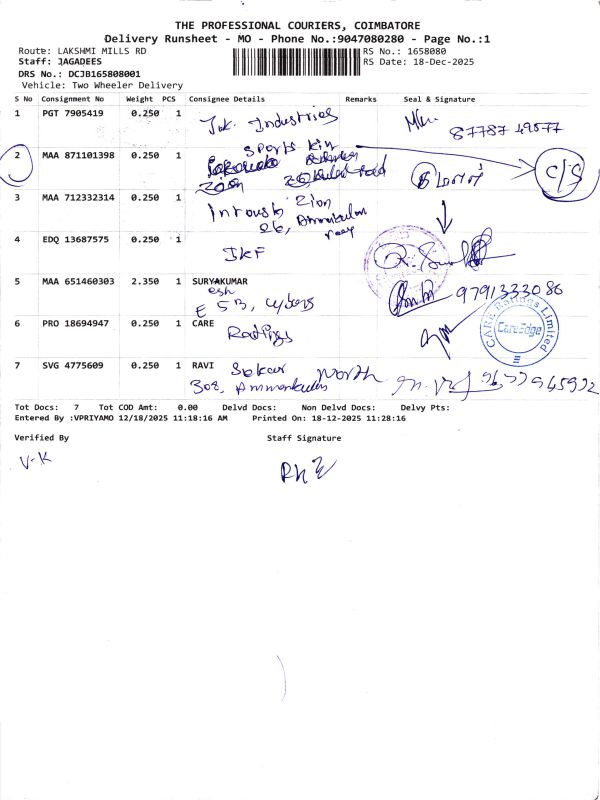 THE PROFESSIONAL COURIERS, COIMBATORE
Delivery Runsheet - MO - Phone No.:9047080280 - Page No.:1
Route: LAKSHMI MILLS RD
RS No.: 1658080
Staff: JAGADEES
RS Date: 18-Dec-2025
DRS No.: DCJB165808001
Vehicle: Two Wheeler Delivery
S No Consignment No Weight PCS Consignee Details Remarks Seal & Signature
1 PGT 7905419 0.250 1 Industries
87787 49577
2 MAA 871101398 0.250 1 Sports
Zion road
C/S
3 MAA 712332314 0.250 1 Zion
26,
4 EDQ 13687575 0.250 1 IKF
5 MAA 651460303 2.350 1 SURYAKUMAR
esh
E 5B,
9791333086
6 PRO 18694947 0.250 1 CARE
Ratings
CARE Ratings Limited
CareEdge
7 SVG 4775609 0.250 1 RAVI North
308,
Tot Docs: 7 Tot COD Amt: 0.00 Delvd Docs: Non Delvd Docs: Delvy Pts:
Entered By :VPRIYAMO 12/18/2025 11:18:16 AM Printed On: 18-12-2025 11:28:16
Verified By Staff Signature
V-K